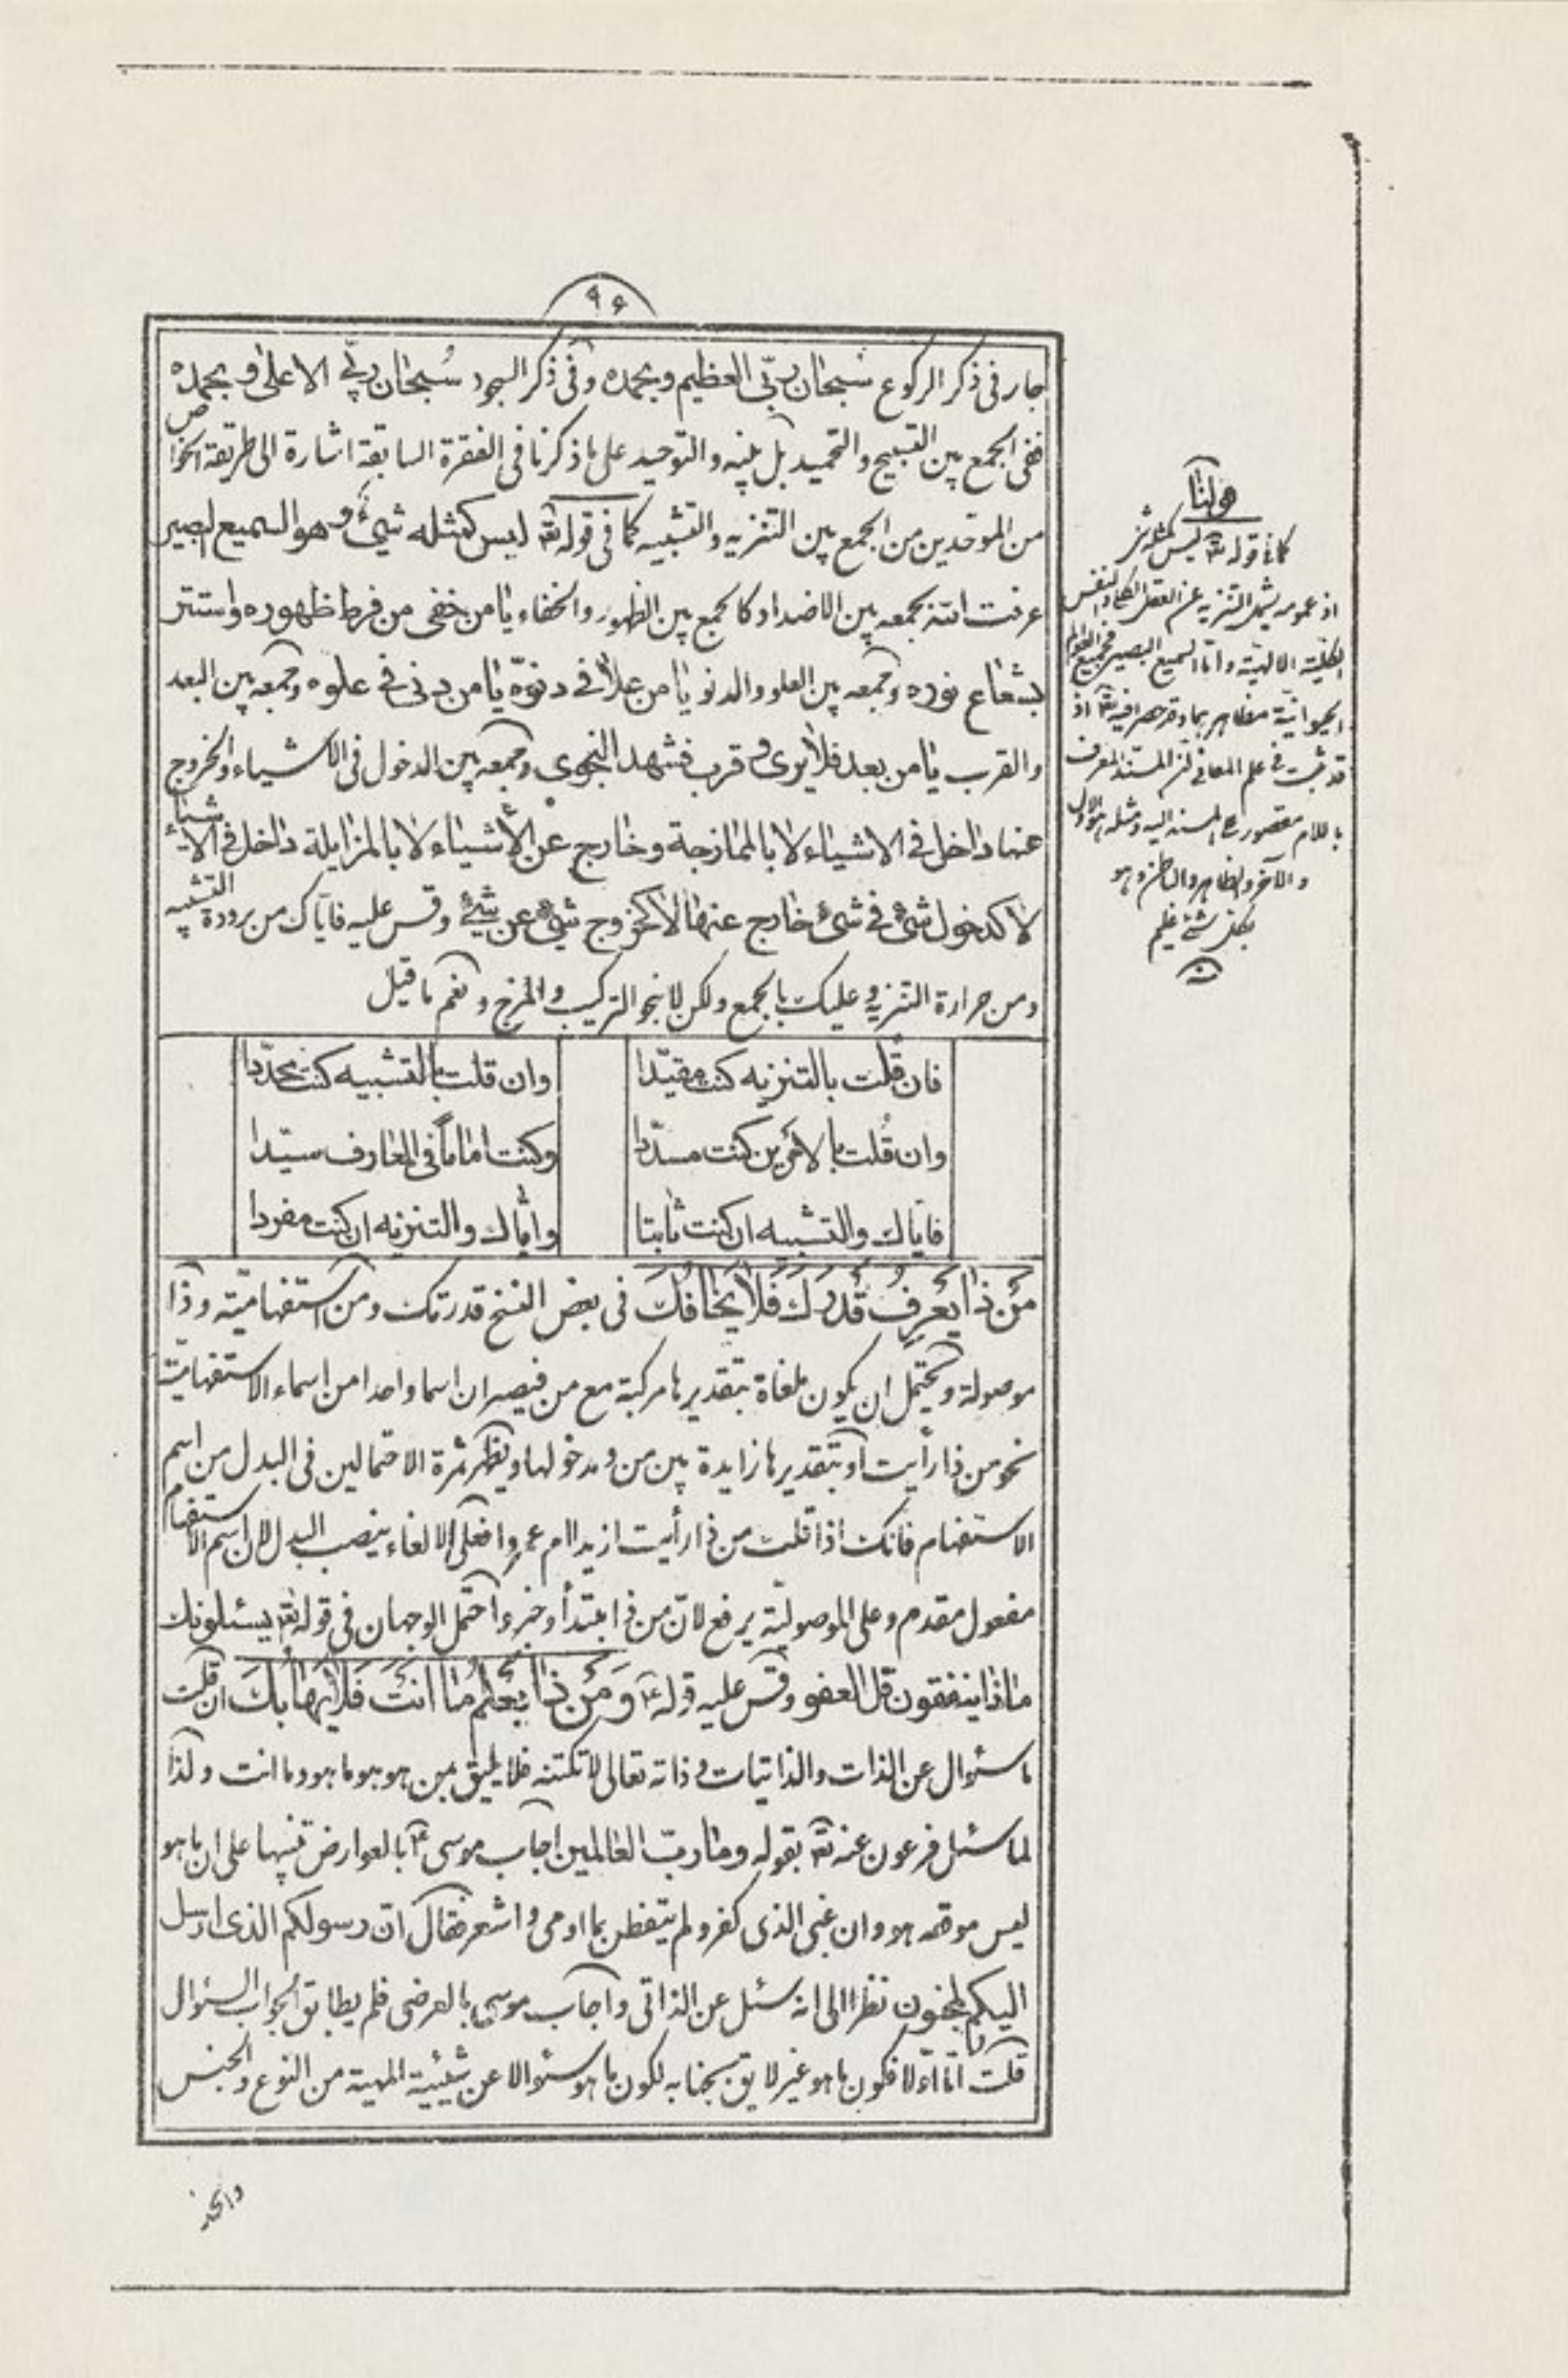 ٩۶
جار فی ذکر الرکوع سبحان ربّی العظیم وبحمده وفی ذکر السجود سُبحان ربّی الاعلی وبحمده
ففی الجمع بین التسبیح والتحمید بل بینه والتوحید علی ما ذکرنا فی الفقرة السابقة اشارة الی طریقة الخواص
من الموحدین من الجمع بین التنزیه والتشبیه کما فی قوله تعٰ لیس کمثله شیء وهو السمیع البصیر
عرفت انه بجمعه بین الاضداد کالجمع بین الظهور والخفاء یا من خفی من فرط ظهوره واستتر
بشعاع نوره وجمعه بین العلو والدنو یا من علا فی دنوّه یا من دنی فی علوه وجمعه بین البعد
والقرب یا من بعد فلا یری وقرب فشهد النجوی وجمعه بین الدخول فی الاشیاء والخروج
عنها داخل فی الاشیاء لا بالممازجة وخارج عن الأشیاء لا بالمزایلة داخل فی الاشیاء
لا کدخول شیء فی شیء خارج عنها لا کخروج شیء عن شیء وقس علیه فایاک من برودة التشبیه
ومن حرارة التنزیه وعلیک بالجمع ولکن لا بنحو الترکیب والمزج ونعم ما قیل
فان قلت بالتنزیه کنت مقیّدا وان قلت بالتشبیه کنت محدّدا
وان قُلت بالامرین کنت مسدّدا وکنت اماماً فی المعارف سیّدا
فایاك والتشبیه ان کنت ثانیا وایّاك والتنزیه ان کنت مفردا
مَن ذا یَعرِفُ قُدرَتَكَ فَلا یَخافُكَ فی بعض النسخ قدرتک ومن استفهامیّة وذا
موصولة ویحتمل ان یکون ملغاة بتقدیرها مرکبة مع من فیصیران اسما واحدا من اسماء الاستفهامیّة
نحو من ذا رأیت او بتقدیرها زایدة بین من ومدخولها ویظهر ثمرة الاحتمالین فی البدل من اسم
الاستفهام فانک اذا قلت من ذا رأیت ازیدا ام عمروا فعلی الالغاء ینصب البدل لان اسم الاستفهام
مفعول مقدم وعلی الموصولیّة یرفع لانّ من ذا مبتدأ وخبر واحتمل الوجهان فی قوله تعٰ یسئلونك
ماذا ینفقون قل العفو وقس علیه قوله ع وَمَن ذا یَعلَمُ ما اَنتَ فَلا یَهابُكَ ان قلت
ما سئوال عن الذات والذاتیات وذاته تعالی لا تکتنه فلا یلیق بمن هو هو ما هو وما انت ولذا
لما سئل فرعون عنه تعٰ بقوله وما ربّ العالمین اجاب موسی ع بالعوارض تنبیها علی ان ما هو
لیس موقعه هو وان غبی الذی کفر ولم یتفطن بما اومی واشعر فقال انّ رسولکم الذی ارسل
الیکم لمجنون نظرا الی انه سئل عن الذاتی واجاب موسی بالعرضی فلم یطابق الجواب السئوال
قلت امّا اوّلا فکون ما هو غیر لایق بجنابه لکون ما هو سئوالا عن شیئیة المهیة من النوع والجنس
قولنا
کما فی قوله تعٰ لیس کمثله شئ
اذ عمومه یشمل التنزیه عن العقل الکلی والنفس
الکلیّة الالهیّة واما السمیع البصیر فجمیع العوالم
الحیوانیّة مظاهرهما وقد حصرا فیه تعٰ اذ
قد ثبت فی علم المعانی ان المسند المعرف
باللام مقصور علی المسند الیه ومثله هو الاول
والآخر والظاهر والباطن وهو
بکل شئ علیم